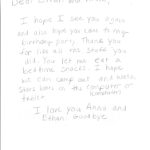 Dear Ethan and Anna,
I hope I see you again
and also hope you came to my
birthday party. Thank you
for like all this stuff you
did. You let me eat a
bedtime snacks. I hope
we can camp out and watch
Stars Wars in the computer or
trailer.
I love you Anna and
Ethan. Goodbye